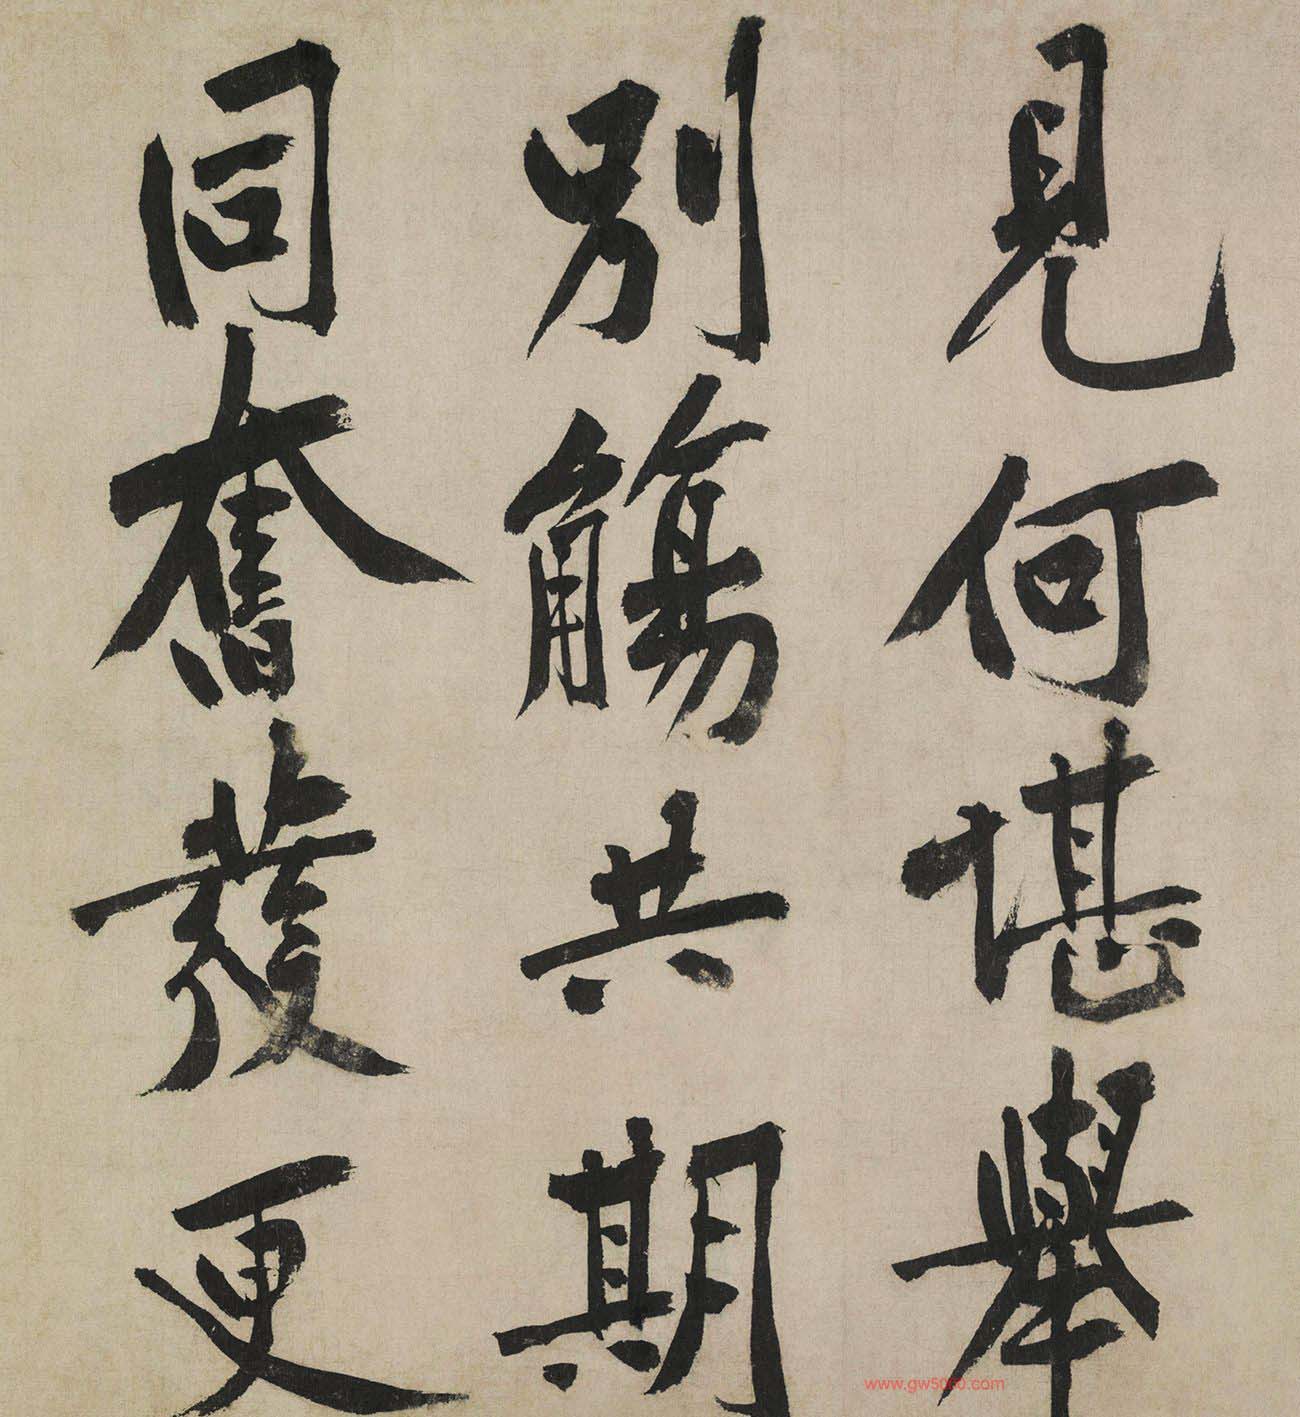 見何堪舉
別觴共期
同奮發更
www.gw5060.com